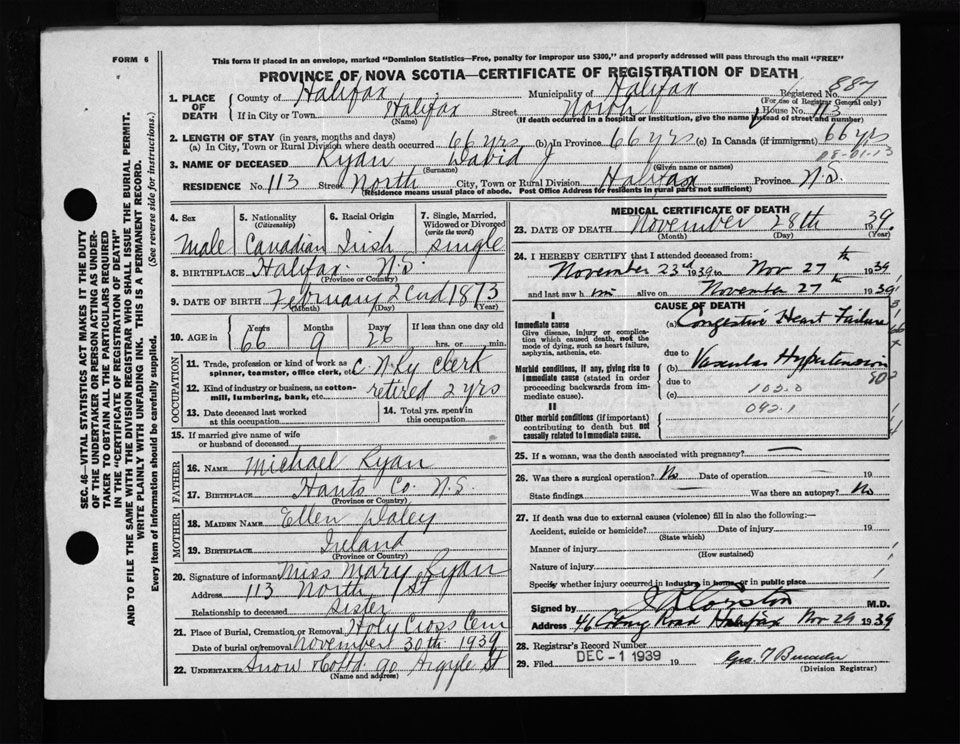 FORM 6
This form if placed in an envelope, marked "Dominion Statistics—Free, penalty for improper use $300," and properly addressed will pass through the mail "FREE"
PROVINCE OF NOVA SCOTIA—CERTIFICATE OF REGISTRATION OF DEATH
Registered No. 887
(For use of Registrar General only)
1. PLACE OF DEATH County of Halifax Municipality of Halifax
If in City or Town Halifax Street North House No. 113
(Name) (If death occurred in a hospital or institution, give the name instead of street and number)
2. LENGTH OF STAY (in years, months and days)
(a) In City, Town or Rural Division where death occurred 66 yrs (b) In Province 66 yrs (c) In Canada (if immigrant) 66 yrs
3. NAME OF DECEASED Ryan David J
(Surname) (Given name or names)
RESIDENCE No. 113 Street North City, Town or Rural Division Halifax Province N.S.
(Residence means usual place of abode. Post Office Address for residents in rural parts not sufficient)
SEC. 46—VITAL STATISTICS ACT MAKES IT THE DUTY
OF THE UNDERTAKER OR PERSON ACTING AS UNDER-
TAKER TO OBTAIN ALL THE PARTICULARS REQUIRED
IN THE "CERTIFICATE OF REGISTRATION OF DEATH"
AND TO FILE THE SAME WITH THE DIVISION REGISTRAR WHO SHALL ISSUE THE BURIAL PERMIT.
WRITE PLAINLY WITH UNFADING INK. THIS IS A PERMANENT RECORD.
Every item of information should be carefully supplied. (See reverse side for instructions.)
4. Sex 5. Nationality (Citizenship) 6. Racial Origin 7. Single, Married, Widowed or Divorced (write the word)
Male Canadian Irish single
8. BIRTHPLACE Halifax N.S.
9. DATE OF BIRTH February 2nd 1873
(Month) (Day) (Year)
10. AGE in Years Months Days If less than one day old
66 9 26 hrs. or min.
OCCUPATION
11. Trade, profession or kind of work as spinner, teamster, office clerk, etc. C. N. Ry Clerk
12. Kind of industry or business, as cotton-mill, lumbering, bank, etc. retired 2 yrs
13. Date deceased last worked at this occupation
14. Total yrs. spent in this occupation
15. If married give name of wife or husband of deceased
FATHER
16. NAME Michael Ryan
17. BIRTHPLACE Hants Co. N.S.
(Province or Country)
MOTHER
18. MAIDEN NAME Ellen Daley
19. BIRTHPLACE Ireland
(Province or Country)
20. Signature of informant Miss Mary Ryan
Address 113 North St
Relationship to deceased Sister
21. Place of Burial, Cremation or Removal Holy Cross Cem
Date of burial or removal November 30th 1939
22. UNDERTAKER Snow & Co Ltd. 90 Argyle St
(Name and address)
MEDICAL CERTIFICATE OF DEATH
23. DATE OF DEATH November 28th 1939.
(Month) (Day) (Year)
24. I HEREBY CERTIFY that I attended deceased from:
November 23rd 1939 to Nov 27th 1939
and last saw him alive on November 27th 1939
CAUSE OF DEATH
I
Immediate cause
Give disease, injury or complication which caused death, not the mode of dying, such as heart failure, asphyxia, asthenia, etc.
(a) Congestive Heart Failure
due to
Morbid conditions, if any, giving rise to immediate cause (stated in order proceeding backwards from immediate cause).
(b) Vascular Hypertension
due to
(c) 102.0
II
Other morbid conditions (if important) contributing to death but not causally related to immediate cause.
092.1
25. If a woman, was the death associated with pregnancy? —
26. Was there a surgical operation? No Date of operation — 19
State findings — Was there an autopsy? No
27. If death was due to external causes (violence) fill in also the following:—
Accident, suicide or homicide? Date of injury 19
(State which)
Manner of injury
(How sustained)
Nature of injury
Specify whether injury occurred in industry, in home, or in public place
Signed by M.D.
Address Road Halifax Nov 29 1939
28. Registrar's Record Number
29. Filed DEC -1 1939 19
(Division Registrar)